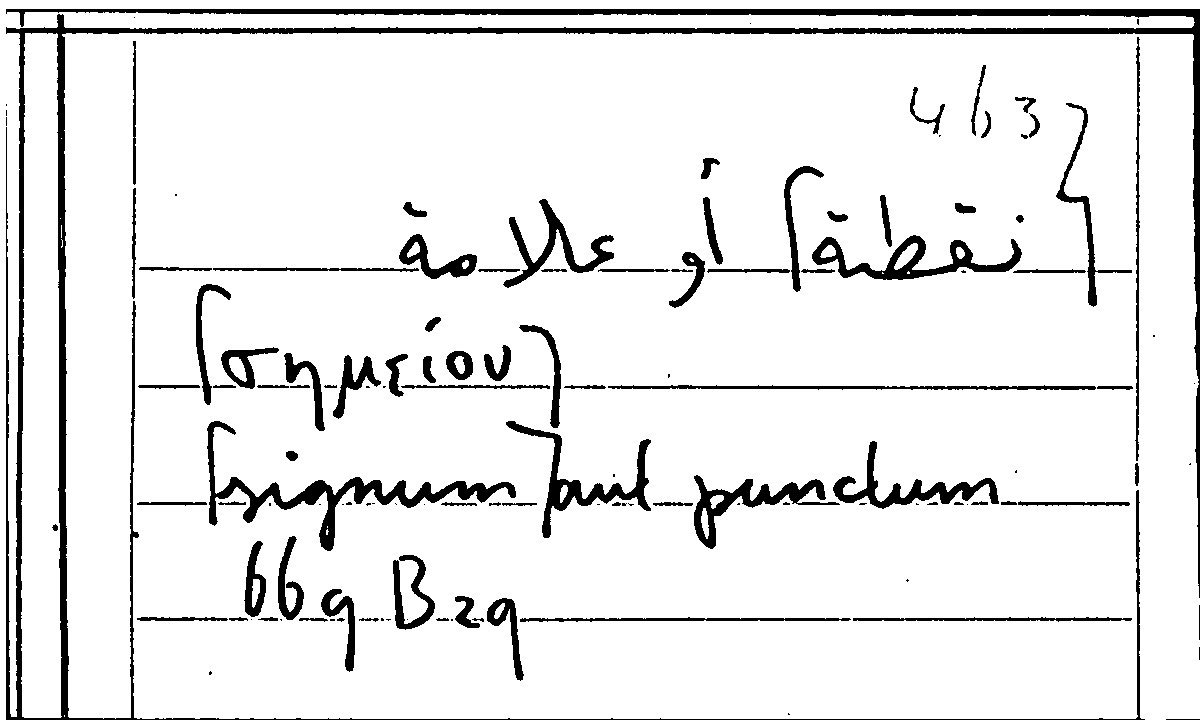 463
⌈نقطة⌉ أو علامة
⌈σημείου⌉
⌈signum⌉ aut punctum
669 B29